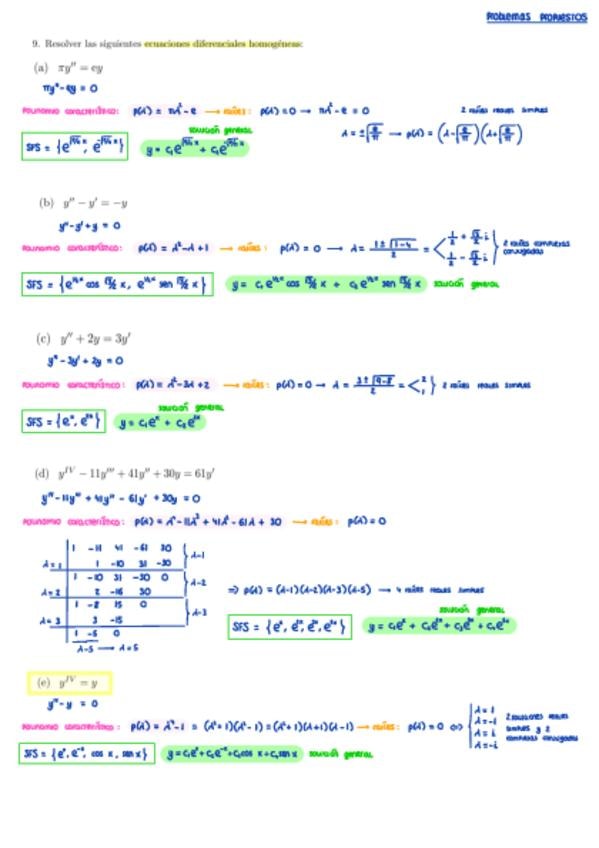 PROBLEMAS PROPUESTOS
9. Resolver las siguientes ecuaciones diferenciales homogéneas:
(a) πy'' = ey
πy'' - ey = 0
POLINOMIO CARACTERÍSTICO: p(λ) = πλ² - e → RAÍCES: p(λ) = 0 → πλ² - e = 0 2 raíces reales simples
λ = ±√(e/π) → p(λ) = (λ - √(e/π))(λ + √(e/π))
solución general
SFS = {e^(√(e/π) x), e^(-√(e/π) x)} y = c₁e^(√(e/π) x) + c₂e^(-√(e/π) x)
(b) y'' - y' = -y
y'' - y' + y = 0
POLINOMIO CARACTERÍSTICO: p(λ) = λ² - λ + 1 → RAÍCES: p(λ) = 0 → λ = (1 ± √(1-4))/2 = < 1/2 + √3/2 i, 1/2 - √3/2 i } 2 raíces complejas conjugadas
SFS = {e^(1/2 x) cos √3/2 x, e^(1/2 x) sen √3/2 x} y = c₁e^(1/2 x) cos √3/2 x + c₂e^(1/2 x) sen √3/2 x solución general
(c) y'' + 2y = 3y'
y'' - 3y' + 2y = 0
POLINOMIO CARACTERÍSTICO: p(λ) = λ² - 3λ + 2 → RAÍCES: p(λ) = 0 → λ = (3 ± √(9-8))/2 = < 2, 1 } 2 raíces reales simples
solución general
SFS = {eˣ, e²ˣ} y = c₁eˣ + c₂e²ˣ
(d) y^IV - 11y''' + 41y'' + 30y = 61y'
y^IV - 11y''' + 41y'' - 61y' + 30y = 0
POLINOMIO CARACTERÍSTICO: p(λ) = λ⁴ - 11λ³ + 41λ² - 61λ + 30 → RAÍCES: p(λ) = 0
1 -11 41 -61 30
λ=1 1 -10 31 -30 } λ-1
1 -10 31 -30 0
λ=2 2 -16 30 } λ-2
1 -8 15 0
λ=3 3 -15 } λ-3
1 -5 0
λ-5 → λ=5
⇒ p(λ) = (λ-1)(λ-2)(λ-3)(λ-5) → 4 raíces reales simples
solución general
SFS = {eˣ, e²ˣ, e³ˣ, e⁵ˣ} y = c₁eˣ + c₂e²ˣ + c₃e³ˣ + c₄e⁵ˣ
(e) y^IV = y
y^IV - y = 0
POLINOMIO CARACTERÍSTICO: p(λ) = λ⁴ - 1 = (λ²+1)(λ²-1) = (λ²+1)(λ+1)(λ-1) → RAÍCES: p(λ) = 0 ⇔ λ = 1 λ = -1 λ = i λ = -i 2 soluciones reales simples y 2 complejas conjugadas
SFS = {eˣ, e⁻ˣ, cos x, sen x} y = c₁eˣ + c₂e⁻ˣ + c₃cos x + c₄sen x solución general